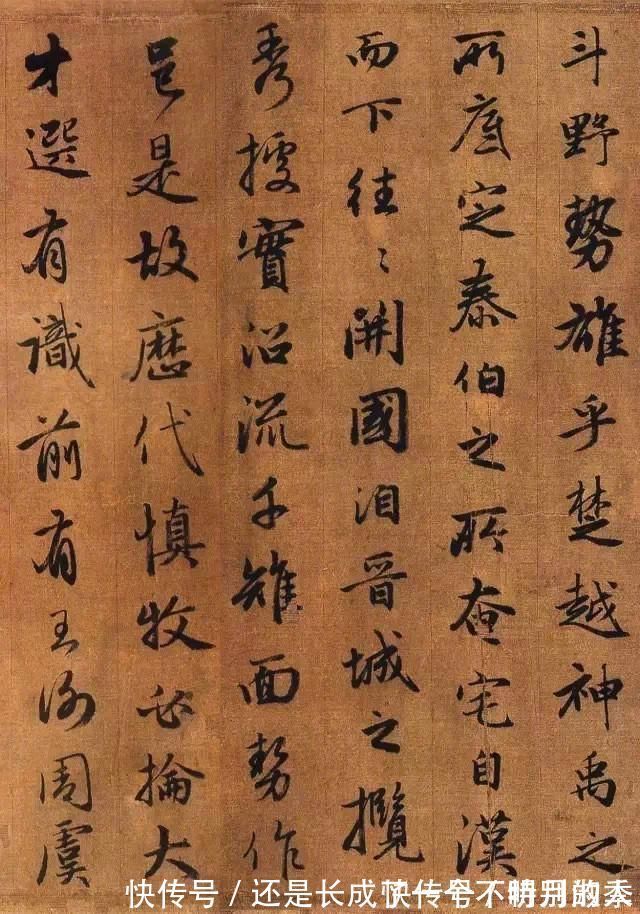 斗野势雄乎楚越神禹之
所底定泰伯之所奄宅自漢
而下往〻開國洎晋城之攬
秀摭實沿流千雉面勢作
邑是故歷代慎牧必掄大
才選有識前有王謝周虞
快传号 / 还是长成了一个不晓月的人